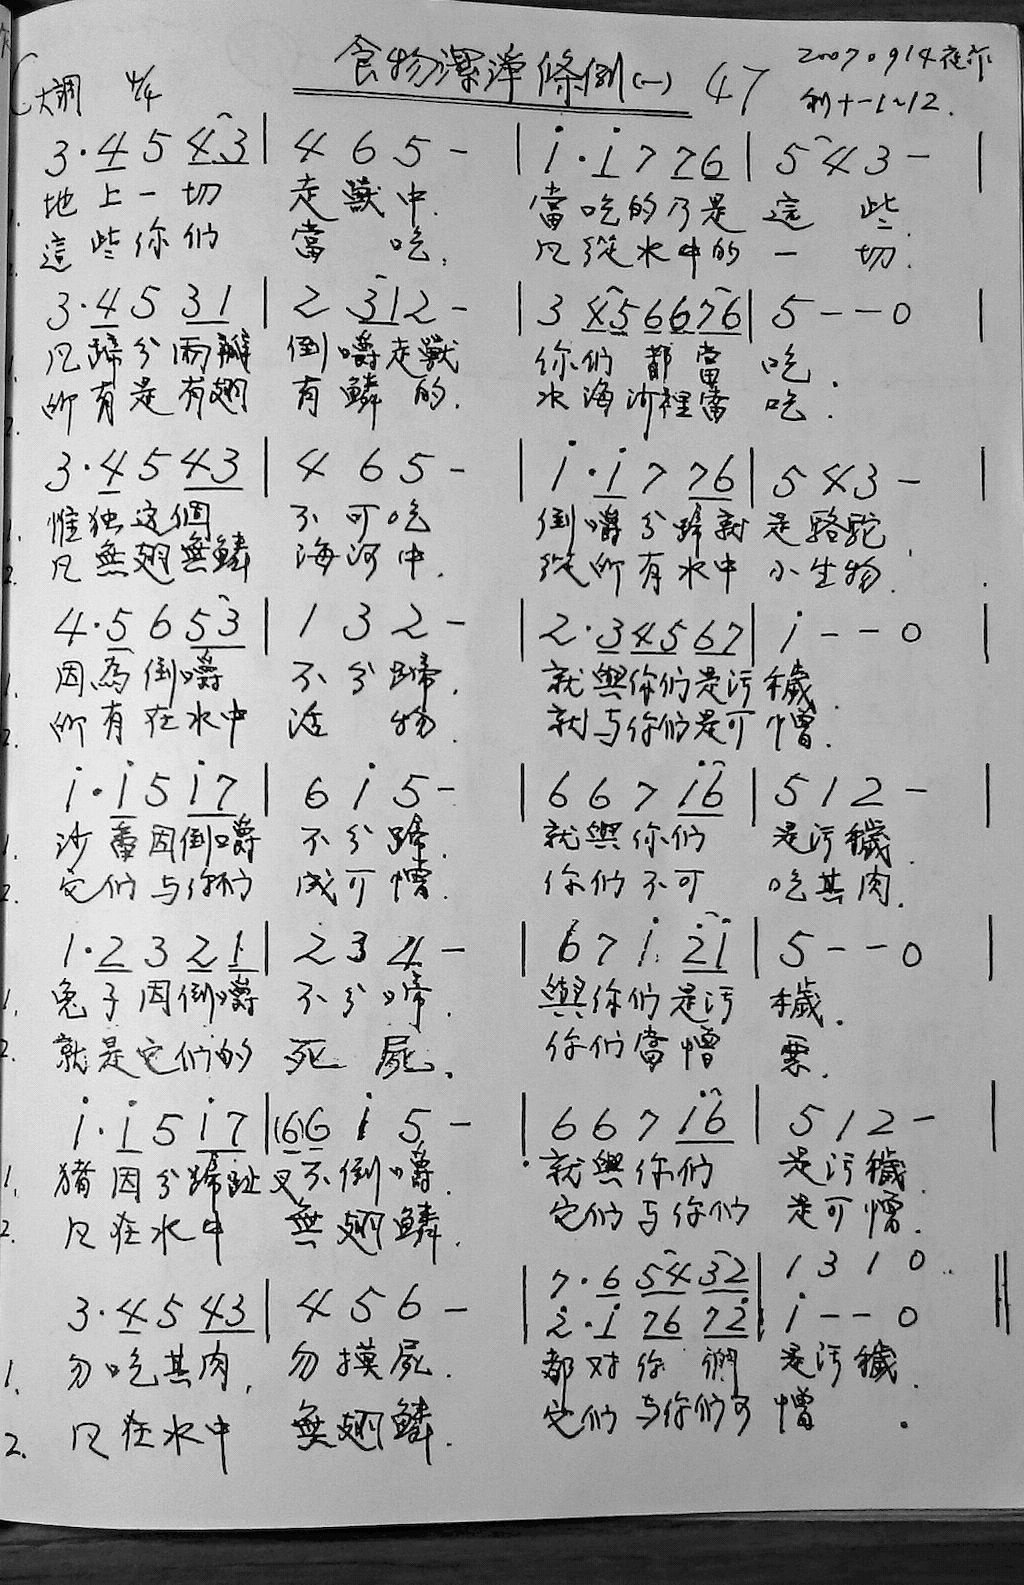 食物潔淨條例(一) 47
2007.0914夜作
C大調 4/4
利十一1~12.
3·4 5 43 | 4 6 5 - | i·i 7 76 | 5 4 3 - |
地上一切 走獸中. 當吃的乃是 這 些.
這些你们 當 吃. 凡從水中的 一 切.
3·4 5 31 | 2 312 - | 3 45 66 76 | 5 - - 0
凡蹄分兩瓣 倒嚼走獸 你们都當 吃.
所有是有翅 有鱗的. 水海河裡當 吃.
3·4 5 43 | 4 6 5 - | i·i 7 76 | 5 4 3 - |
1. 惟独这個 不可吃 倒嚼分蹄就 是駱駝.
2. 凡無翅無鱗 海河中. 從所有水中 小生物.
4·5 6 53 | 1 3 2 - | 2·3 45 67 | i - - 0 |
1. 因為倒嚼 不分蹄. 就與你们是污 穢.
2. 所有在水中 活 物. 就与你们是可 憎.
i·i 5 i7 | 6 i 5 - | 6 6 7 i6 | 5 1 2 - |
1. 沙番因倒嚼 不分蹄. 就與你们 是污穢.
2. 它们与你们 成可憎. 你们不可 吃其肉.
1·2 3 2 1 | 2 3 4 - | 6 7 i 2i | 5 - - 0 |
1. 兔子因倒嚼 不分啼. 與你们是污 穢.
2. 就是它们的 死 屍. 你们當憎 惡.
i·i 5 i7 | (6)6 i 5 - | 6 6 7 i6 | 5 1 2 - |
1. 豬因分蹄趾 又不倒嚼. 就與你们 是污穢.
2. 凡在水中 無翅鱗. 它们与你们 是可憎.
7·6 54 32 | 1 3 1 0
3·4 5 43 | 4 5 6 - | 2·i 76 72 | i - - 0 ||
1. 勿吃其肉, 勿摸屍. 都对你們 是污穢.
2. 凡在水中 無翅鱗. 它们与你们可 憎.